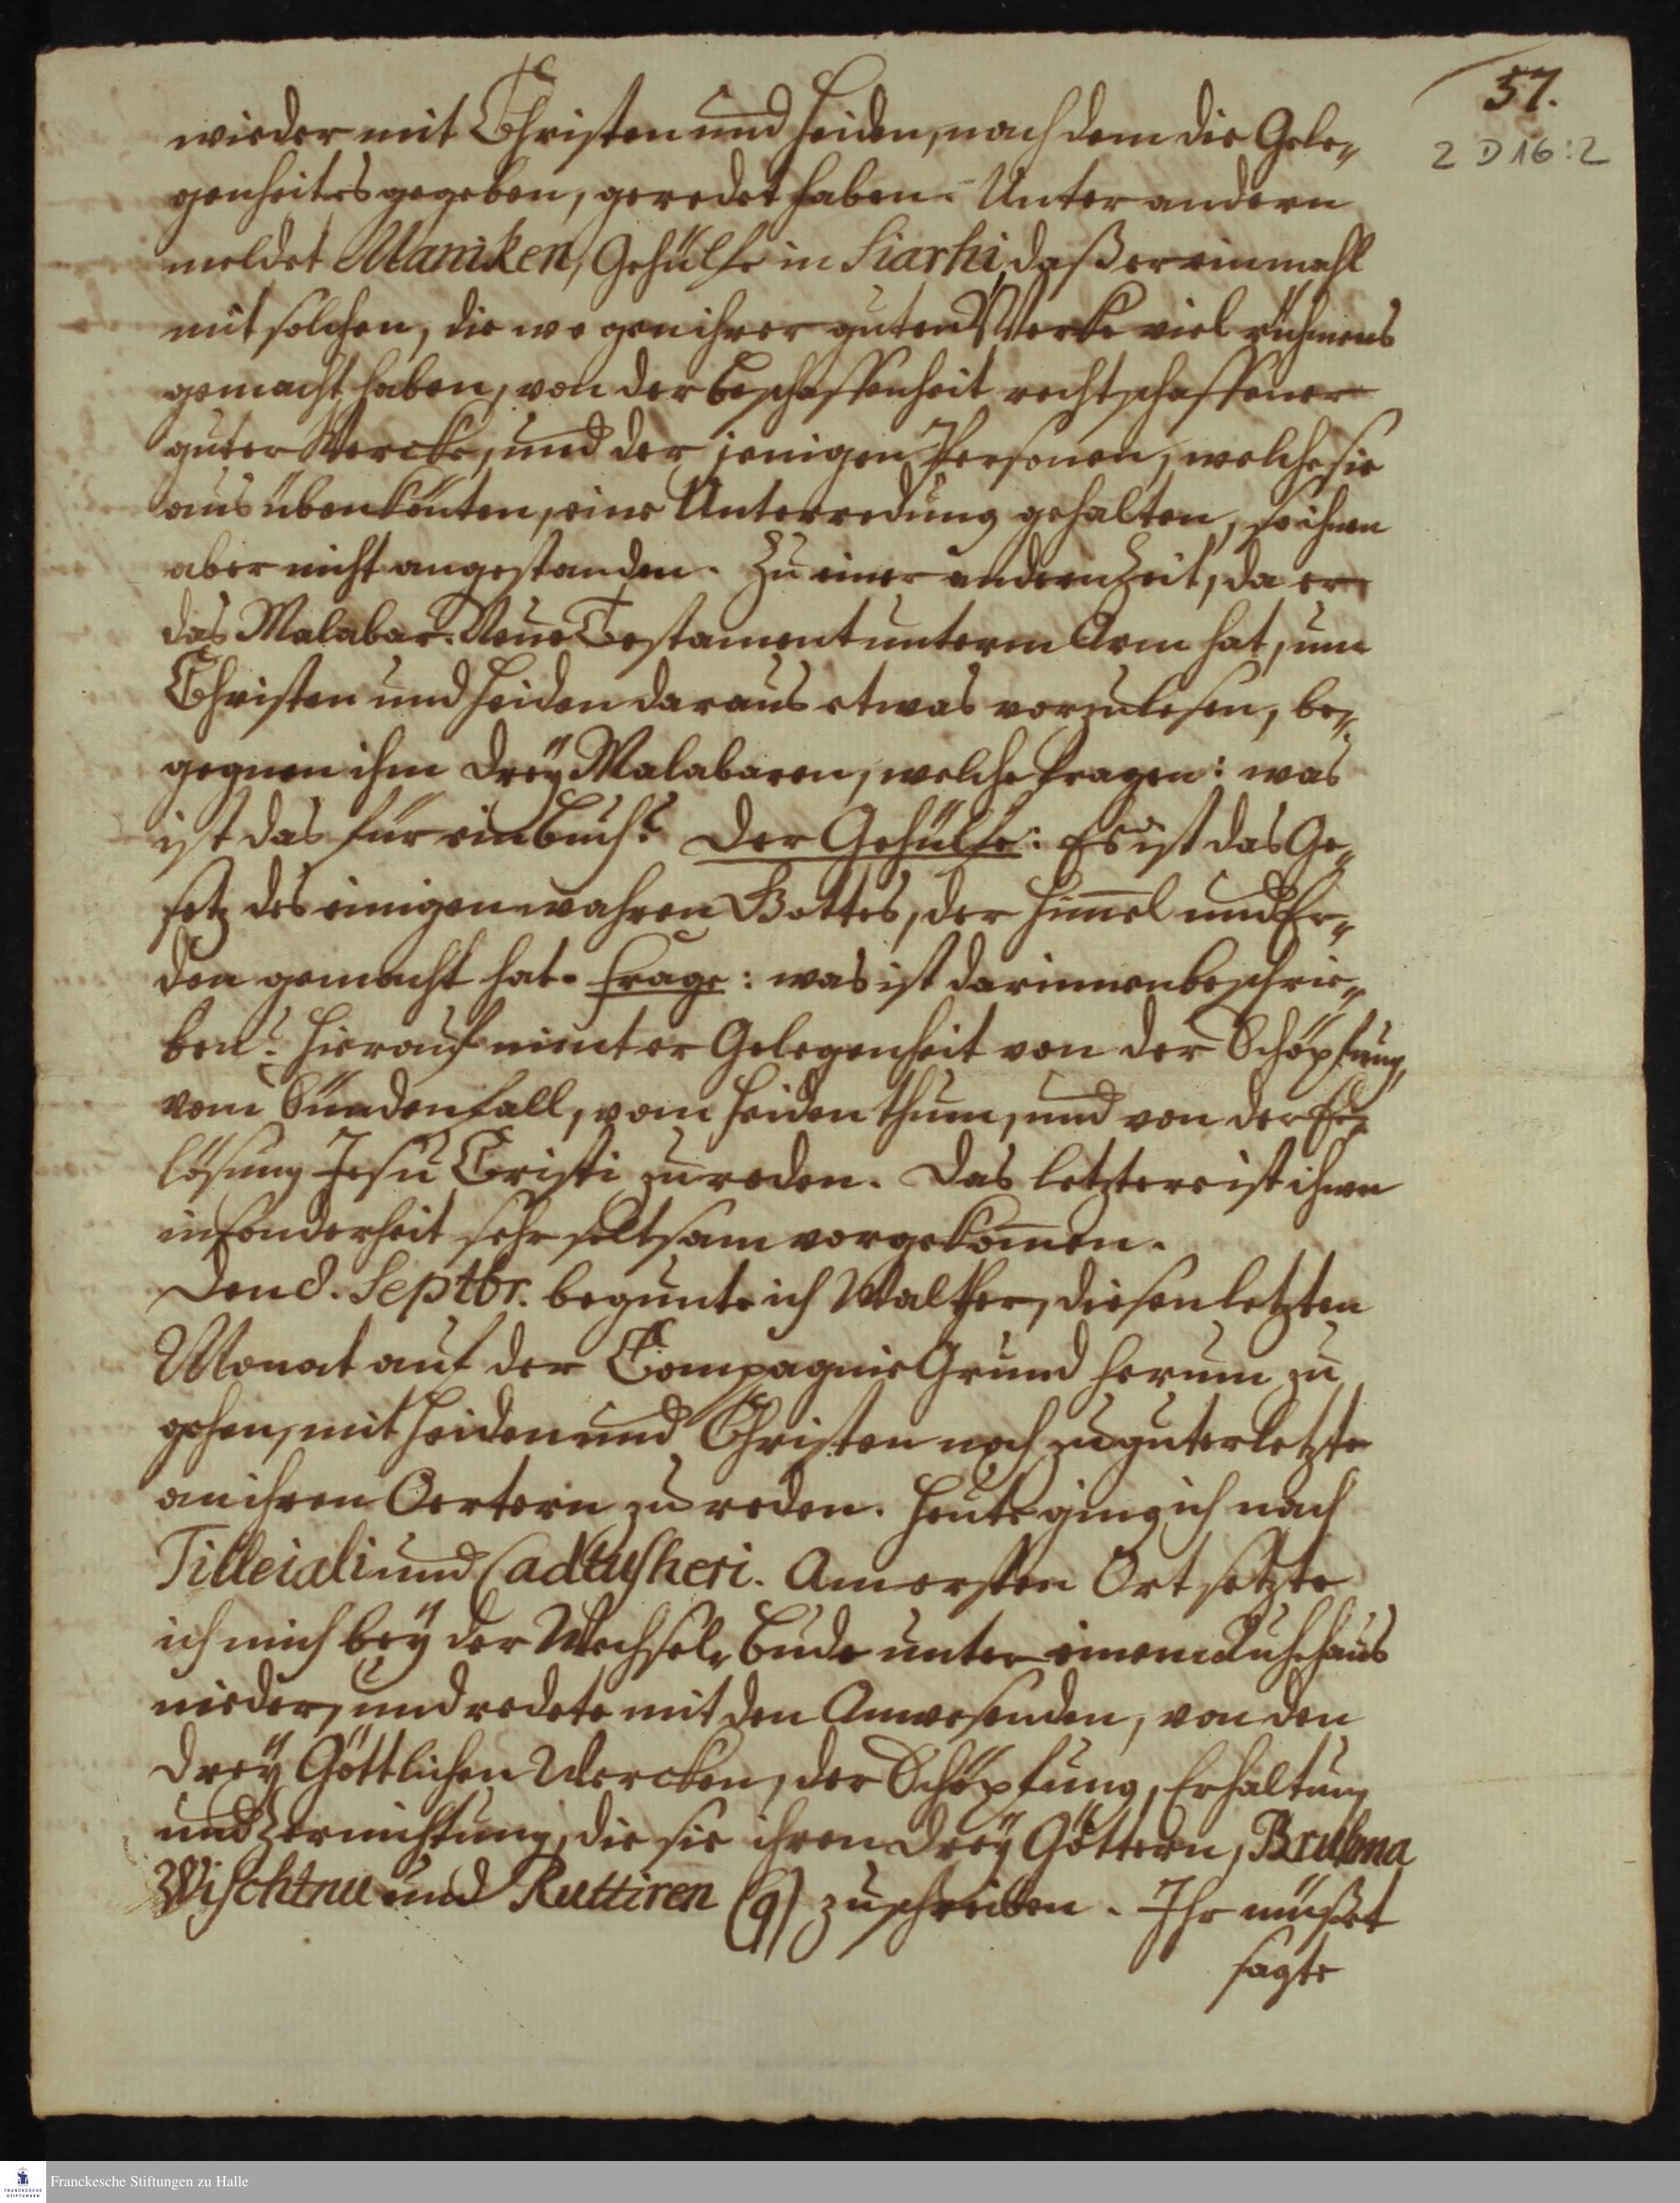 57.
2 D 16:2
wieder mit Christen und Heiden, nach dem die Gele„
genheit es gegeben, geredet haben. Unter andern
meldet Maniken, Gehülfe in Siarhi, daß er einmahl
mit solchen, die wegen ihrer guten Werke viel rühmens
gemacht haben, von der Beschaffenheit rechtschaffener
guter Wercke, und der jenigen Personen, welche sie
aus üben könten, eine Unterredung gehalten, so ihnen
aber nicht angestanden. Zu einer andern Zeit, da er
das Malabar. Neue Testament unterm Arm hat, um
Christen und Heiden daraus etwas vorzulesen, be„
gegnen ihm drey Malabaren, welche fragen: was
ist das für ein Buch? Der Gehülfe: Es ist das Ge„
setz des einigen wahren Gottes, der Him̅el und Er„
den gemacht hat. Frage: was ist darinnen beschrie„
ben? Hierauf nimt er Gelegenheit von der Schöpfung,
vom Sündenfall, vom Heidenthum, und von der Er„
lösung Jesu Cristi zu reden. Das letztere ist ihnen
insonderheit sehr seltsam vorgekom̅en.
Den 8. Septbr. begunte ich Walther, diesen letzten
Monat auf der Compagnie Grund herum zu
gehen, mit Heiden und Christen noch zu guter letzte
an ihren Oertern zu reden. Heute ging ich nach
Tilleiali und Cadtusheri. Am ersten Ort setzte
ich mich bey der Wechsel„Bude unter einem Ruhehaus
nieder, und redete mit den Anwesenden, von den
drey Göttlichen Wercken, der Schöpfung, Erhaltung
und Zernichtung, die sie ihren drey Göttern, Bruhma
Wischtnu und Ruttiren (q) zuschreiben. Ihr müßet
sagte
Franckesche Stiftungen zu Halle